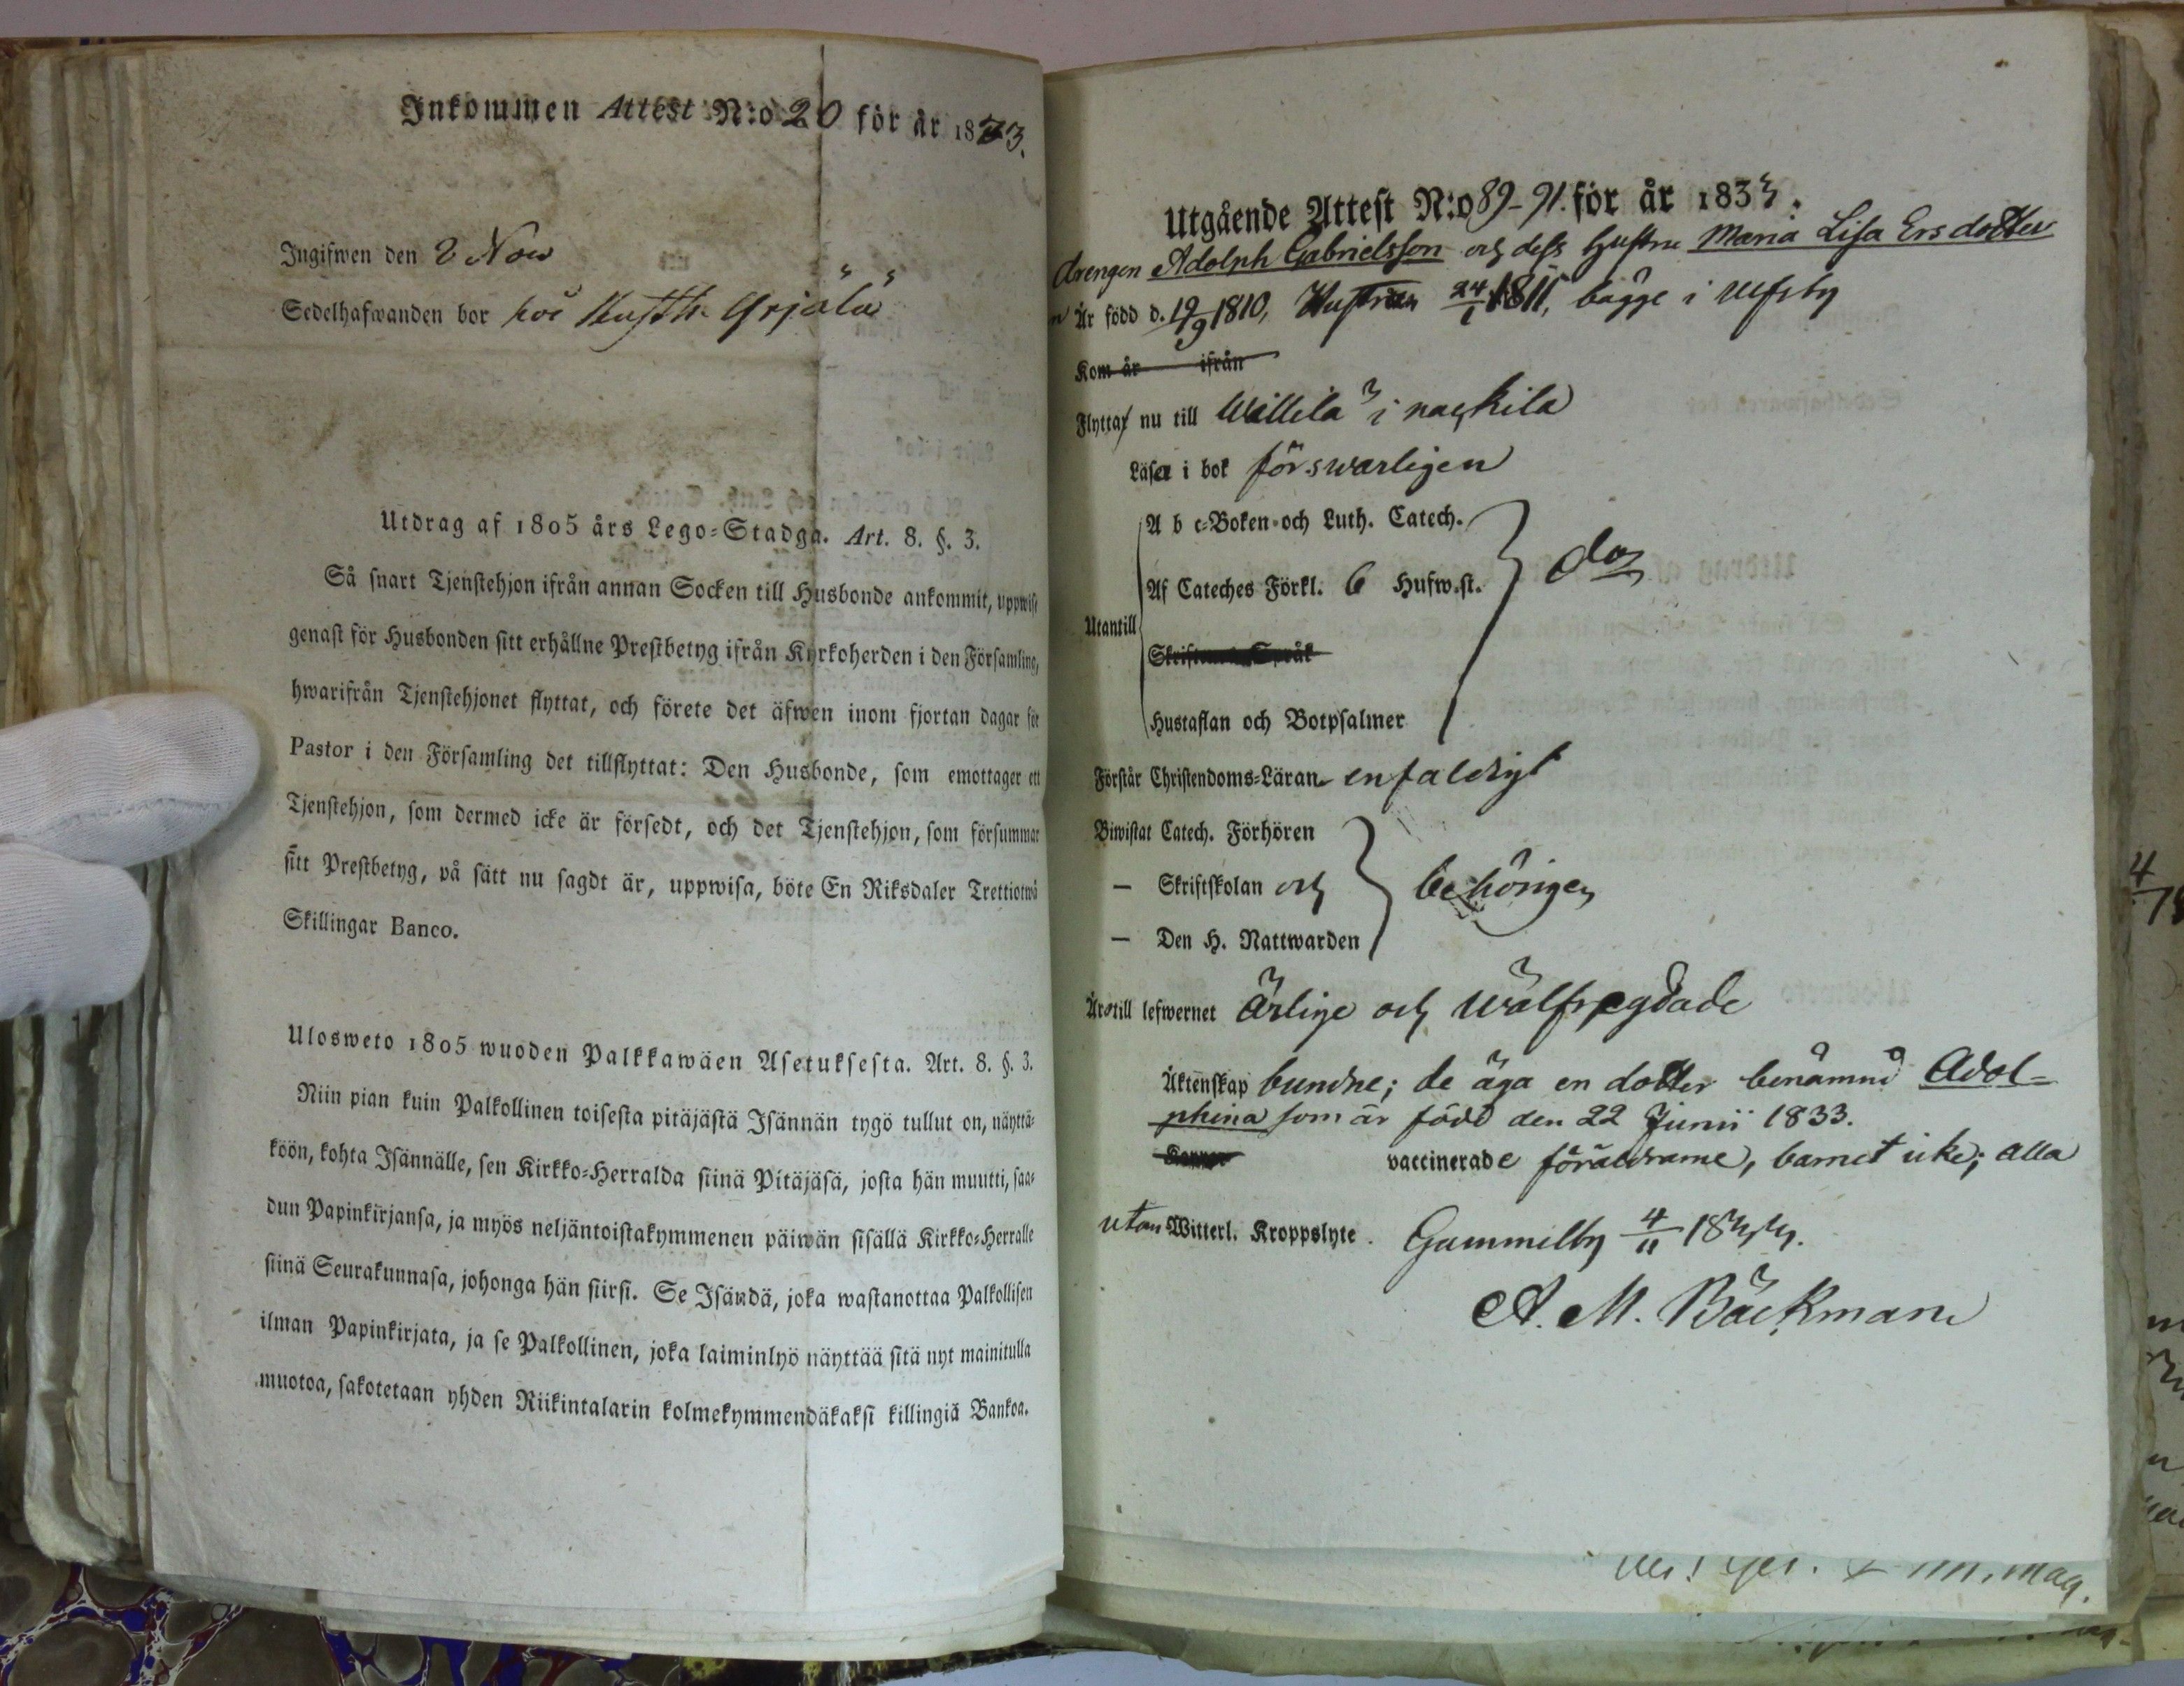 Inkommen Attest N:o 20 för år 1833.
Ingifwen den 8 Nov
Sedelhafwanden bor hos
Utdrag af 1805 års Lego-Stadga. Art. 8. §. 3.
Så snart Tjenstehjon ifrån annan Socken till Husbonde ankommit, uppwise
genast för Husbonden sitt erhållne Prestbetyg ifrån Kyrkoherden i den Församling,
hwarifrån Tjenstehjonet flyttat, och förete det äfwen inom fjortan dagar för
Pastor i den Församling det tillflyttat: Den Husbonde, som emottager ett
Tjenstehjon, som dermed icke är försedt, och det Tjenstehjon, som försummar
sitt Prestbetyg, på sätt nu sagdt är, uppwisa, böte En Riksdaler Trettiotwå
Skillingar Banco.
Ulosweto 1805 wuoden Palkkawäen Asetuksesta. Art. 8. §. 3.
Niin pian kuin Palkollinen toisesta pitäjästä Isännän tygö tullut on, näyttä-
köön, kohta Isännälle, sen Kirkko-Herralda siinä Pitäjäsä, josta hän muutti, saa-
dun Papinkirjansa, ja myös neljäntoistakymmenen päiwän sisällä Kirkko-Herralle
siinä Seurakunnasa, johonga hän siirsi. Se Isändä, joka wastanottaa Palkollisen
ilman Papinkirjata, ja se Palkollinen, joka laiminlyö näyttää sitä nyt mainitulla
muotoa, sakotetaan yhden Riikintalarin kolmekymmendäkaksi killingiä Bankoa.
Utgående Attest N:o 89-91. för år 1833.
Drengen Adolph Gabrielsson och dess hustru Maria Lisa Ersdotter
Är född d. 19/9 1810, Hustrun 24/1 1811, bägge i Ulfsby
Kom år ifrån
Flytta nu till Willila i nackila
Läsa i bok förswarligen
A b c-Boken och Luth. Catech.
Af Cateches Förkl. 6 Hufw.st. do
Utantill
Skriftens Språk
Hustaflan och Botpsalmer
Förstår Christendoms-Läran enfaldigt
Biwistat Catech. Förhören
— Skriftskolan och behörigen
— Den H. Nattwarden
Äro till lefwernet ärlige och wälfregdade
Äktenskap bundne; de äga en dotter benämnd Adol-
phina som är född den 22 Junii 1833.
vaccinerade föräldrarne, barnet icke; alla
utan Witterl. Kroppslyte. Gammelby 4/11 1833.
A. M. Bäckman